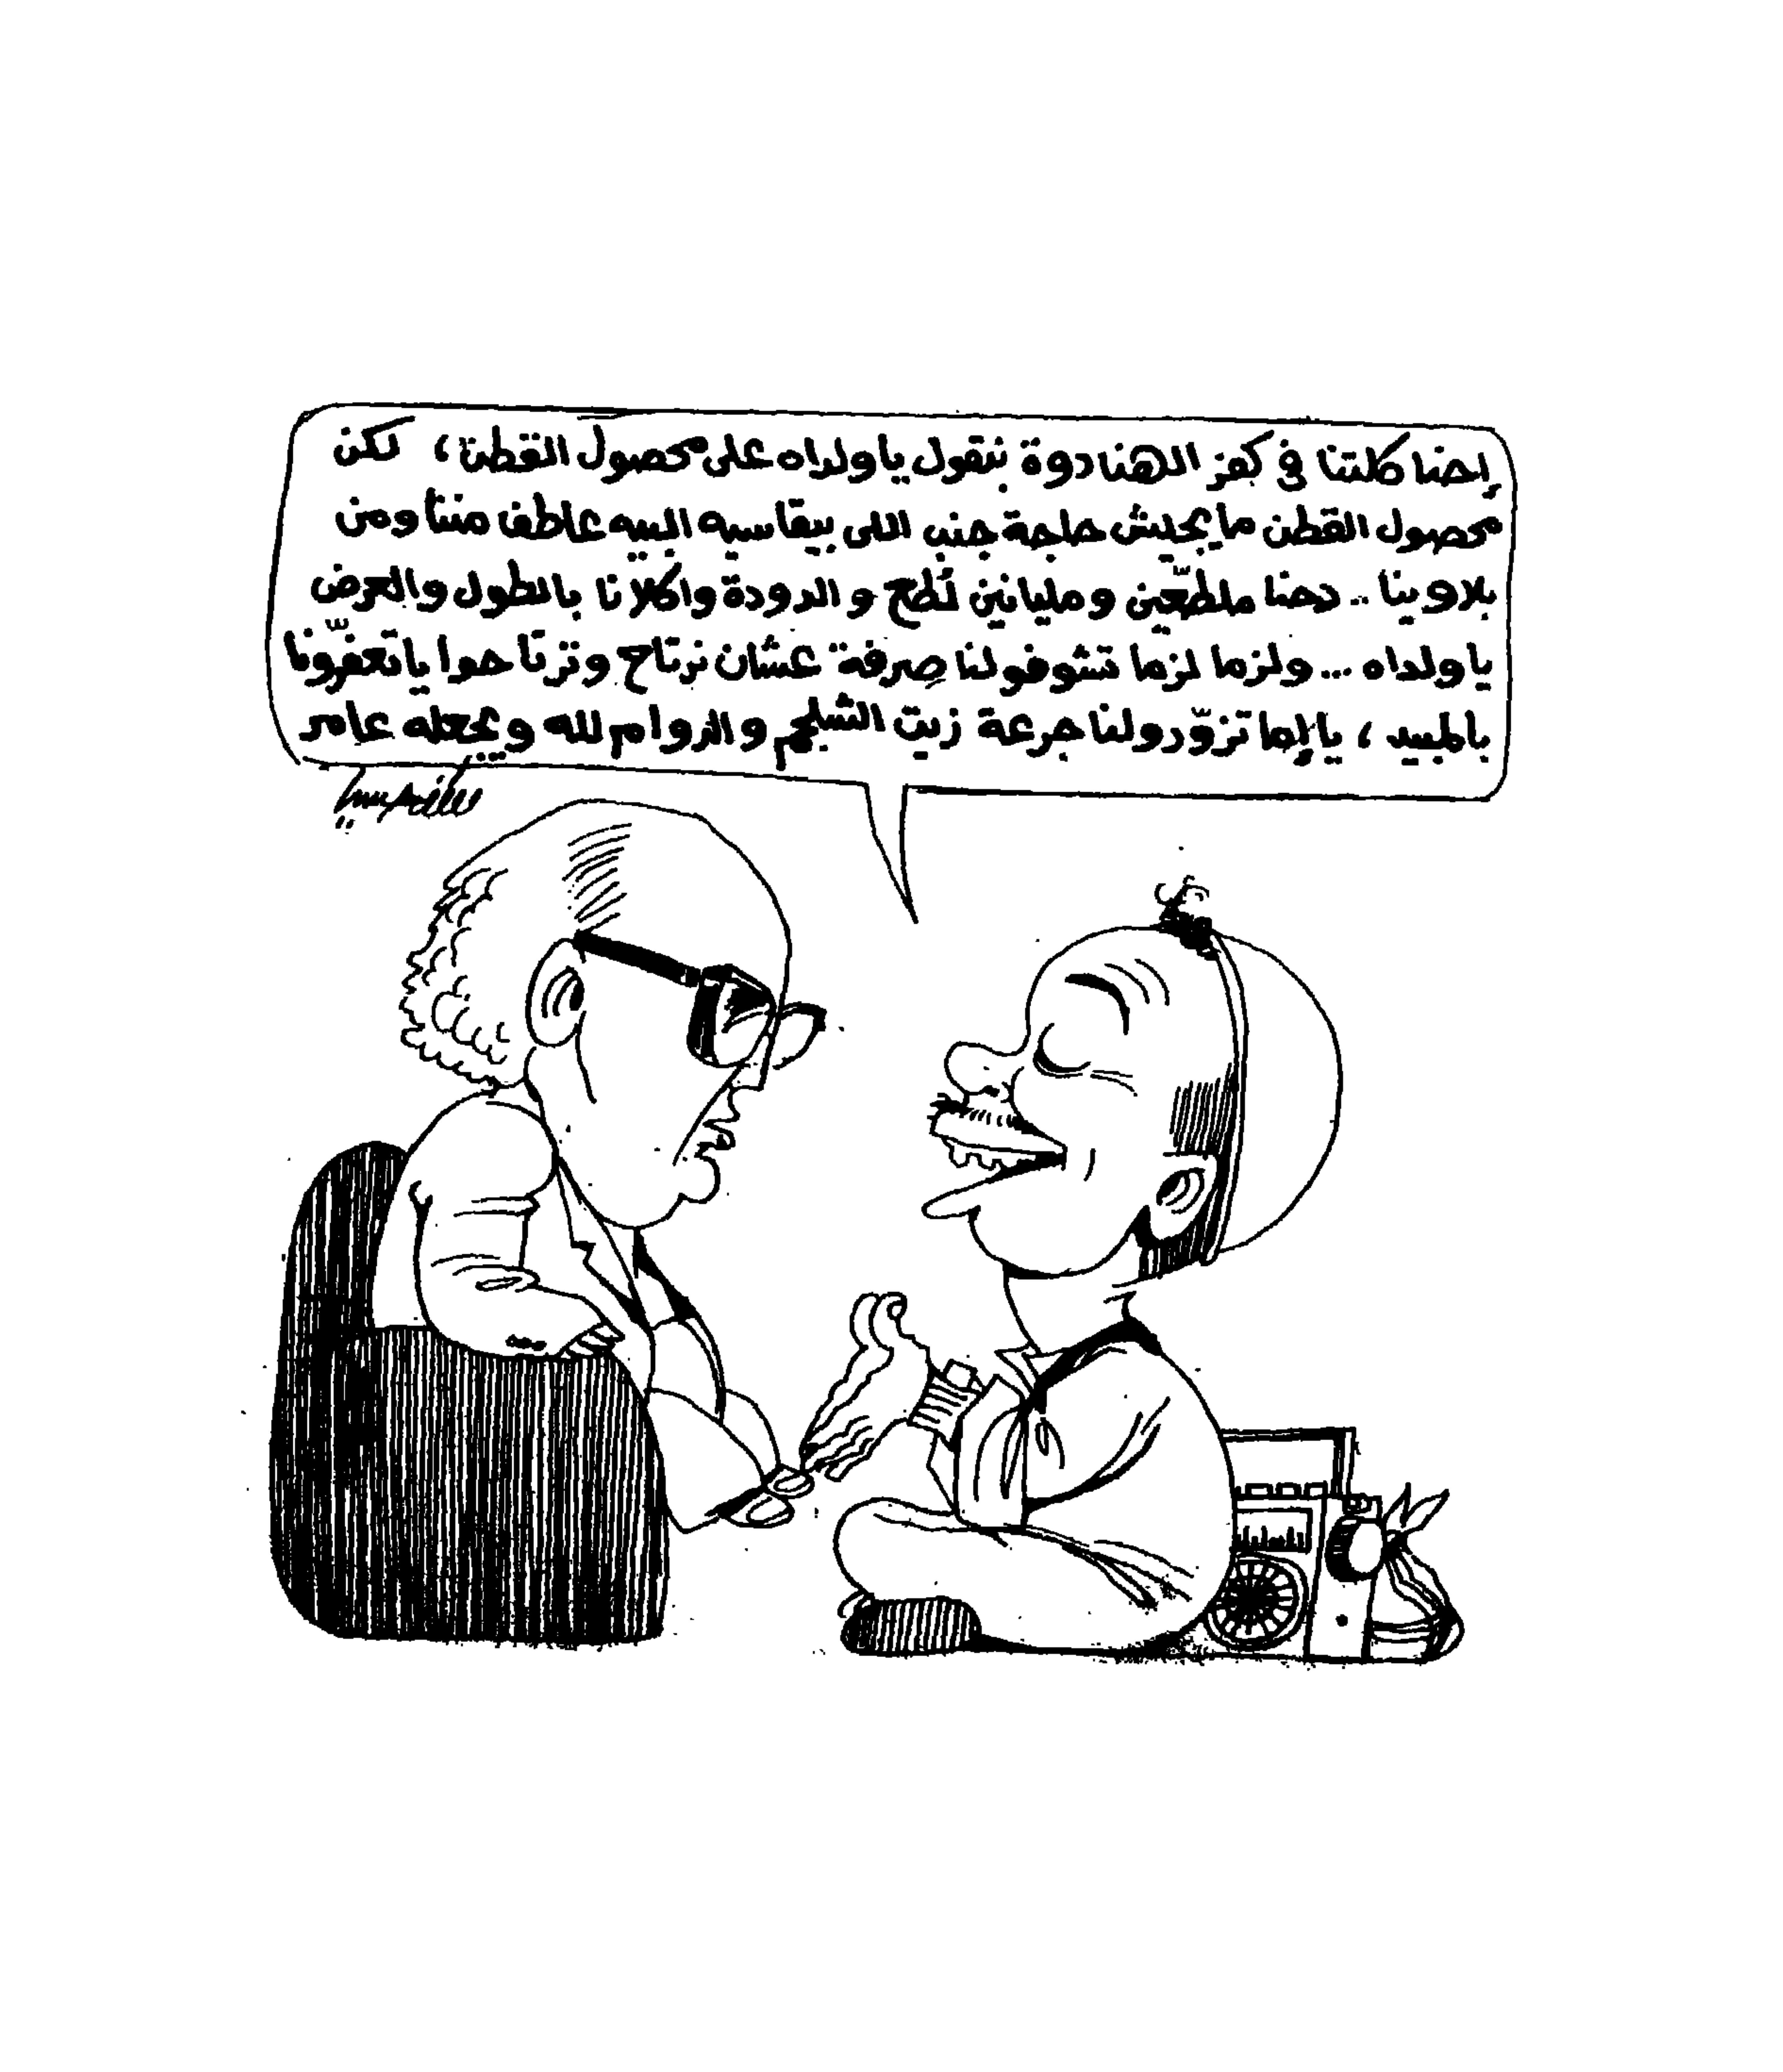 إحنا كلتنا في كفر الهنادوة بنقول يا ولداه على محصول القطن، لكن
محصول القطن ما يجيش حاجة جنب اللى بيقاسيه البيه عاطف مننا ومن
بلاوينا .. دحنا ملطّعين ومليانين لُطع والدودة واكلانا بالطول والعرض
يا ولداه ... ولزما لزما تشوفولنا صِرفة عشان نرتاح وترتاحوا يا تعفّرونا
بالمبيد، يا إما تزوّدولنا جرعة زيت الشلجم والدوام لله ويجعله عامر